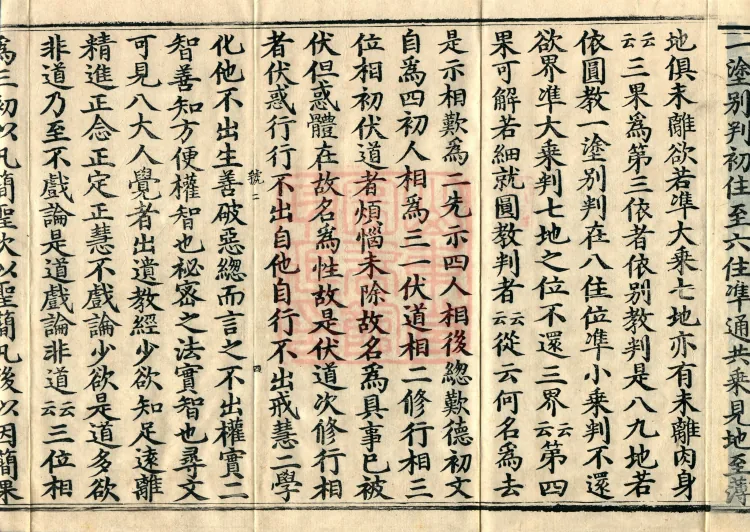 二塗別判初住至六住準通共乘見地至薄
地俱未離欲若準大乘七地亦有未離肉身
云云三果爲第三依者依別教判是八九地若
依圓教一塗別判在八住位準小乘判不還
欲界準大乘判七地之位不還三界云云第四
果可解若細就圓教判者云云從云何名爲去
是示相歎爲二先示四人相後總歎德初文
自爲四初人相爲三一伏道相二修行相三
位相初伏道者煩惱未除故名爲具事已被
伏但惑體在故名爲性故是伏道次修行相
者伏惑行行不出自他自行不出戒慧二學
號二
四
化他不出生善破惡總而言之不出權實二
智善知方便權智也祕密之法實智也尋文
可見八大人覺者出遺教經少欲知足遠離
精進正念正定正慧不戲論少欲是道多欲
非道乃至不戲論是道戲論非道云云三位相
爲三初以凡簡聖次以聖簡凡後以因簡果